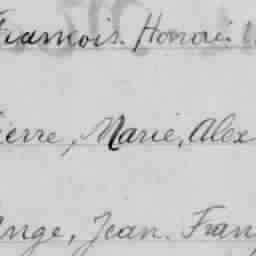 Francois. Honoré
ierre, Marie, Alex
Ange, Jean. Fran